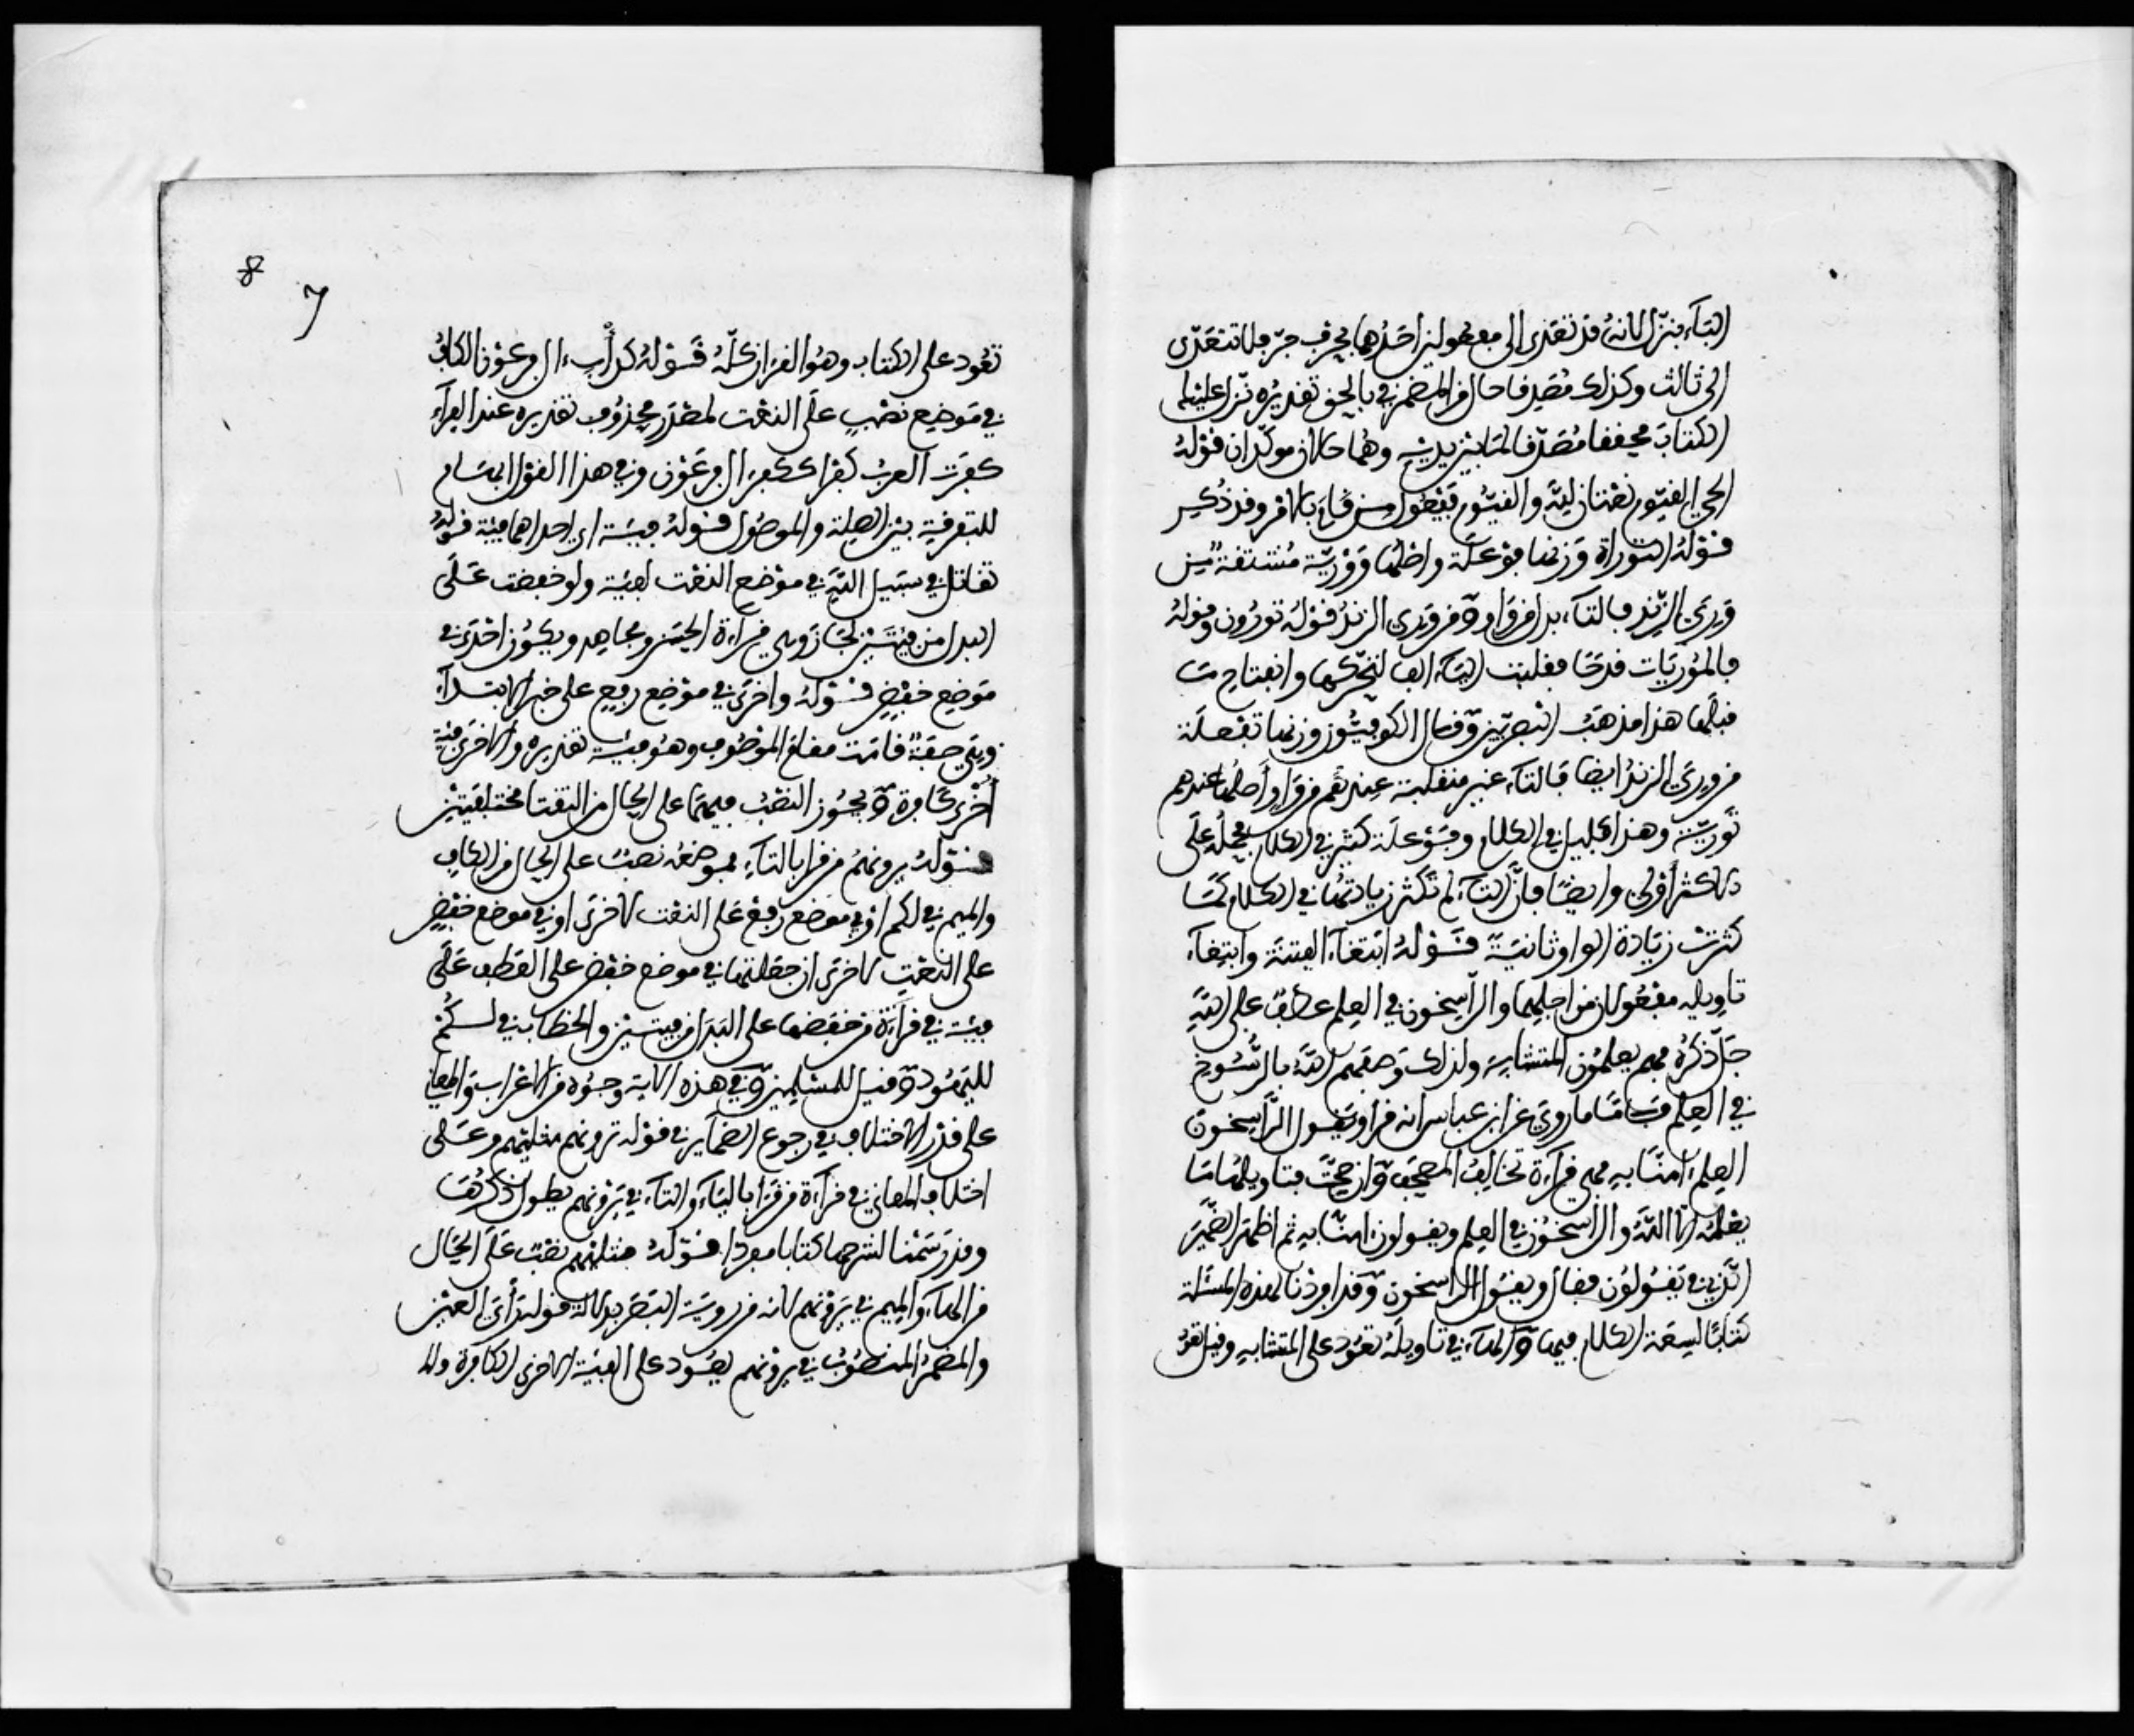 الباء بنزل لانه قد تعدى الى مفعولين احدهما بحرف جر فلا تتعدى
الى ثالث وكذلك مصدقا حال من المضمر في بالحق تقديره نزل عليك
الكتاب محققا مصدقا لما بين يديه وهما حالان موكدان قوله
الحي القيوم نعتان لله والقيوم فيعول من قام بالامر وقد ذكر
قوله التوراة وزنها فوعلة واصلها وورية مشتقة من
وري الزند فالتاء بدل من واو ومن وري الزند قوله تورون وقوله
فالموريات قدحا فقلبت الياء الفا لتحركها وانفتاح ما
قبلها هذا مذهب البصريين وقال الكوفيون وزنها تفعلة
من وري الزند ايضا فالتاء غير منقلبة عندهم من واو واصلها عندهم
تورية وهذا قليل في الكلام وفوعلة كثير في الكلام فحمله على
الاكثر اولى وايضا فان التاء لم تكثر زيادتها في الكلام كما
كثرت زيادة الواو ثانية قوله ابتغاء الفتنة وابتغاء
تاويله مفعولان من اجلهما والراسخون في العلم عطف على الله
جل ذكره فهم يعلمون المتشابه ولذلك وصفهم الله بالرسوخ
في العلم فاما ما روي عن ابن عباس انه قرا ويقول الراسخون
العلم امنا به فهي قراءة تخالف المصحف وان صحت فتاويلها ما
يعلمه الا الله والراسخون في العلم ويقولون امنا به ثم اظهر الضمير
الذي في يقولون فقال ويقول الراسخون وقد افردنا لهذه المسئلة
كتابا لسعة الكلام فيها والهاء في تاويله تعود على المتشابه وقيل تعود
8
7
تعود على الكتاب وهو القران كله قوله كداب ءال فرعون الكاف
في موضع نصب على النعت لمصدر محذوف تقديره عند الفراء
كفرت العرب كفرا ككفر ال فرعون وفي هذا القول ابهام
للتفرقة بين الصلة والموصول قوله فيئة اي احداهما فيئة قوله
تقاتل في سبيل الله في موضع النعت لفئة ولو خفضت على
البدل من فئتين لجاز وهي قراءة الحسن ومجاهد ويكون اخرى في
موضع خفض قوله واخرى في موضع رفع على خبر الابتداء
وهي صفة قامت مقام الموصوف وهو فيئة تقديره والاخرى فئة
اخرى كافرة ويجوز النصب فيهما على الحال من التقتا مختلفتين
قوله يرونهم من قرا بالتاء فموضعه نصب على الحال من الكاف
والميم في لكم او في موضع رفع على النعت لاخرى او في موضع خفض
على النعت لاخرى ان جعلتها في موضع خفض على العطف على
فيئة في قراءة من خفضها على البدل من فيئتين والخطاب في لكم
لليهود وقيل للمسلمين وفي هذه الاية وجوه من الاعراب والمعاني
على قدر الاختلاف في رجوع الضمائر في قوله ترونهم مثليهم وعلى
اختلاف المعاني في قراءة من قرا بالياء والتاء في يرونهم يطول ذكرها
وقد رسمنا لشرحها كتابا مفردا قوله مثليهم نصب على الحال
من الهاء والميم في يرونهم لانه من روية البصر بدلالة قوله راي العين
والمضمر المنصوب في يرونهم يعود على الفيئة الاخرى الكافرة والـ